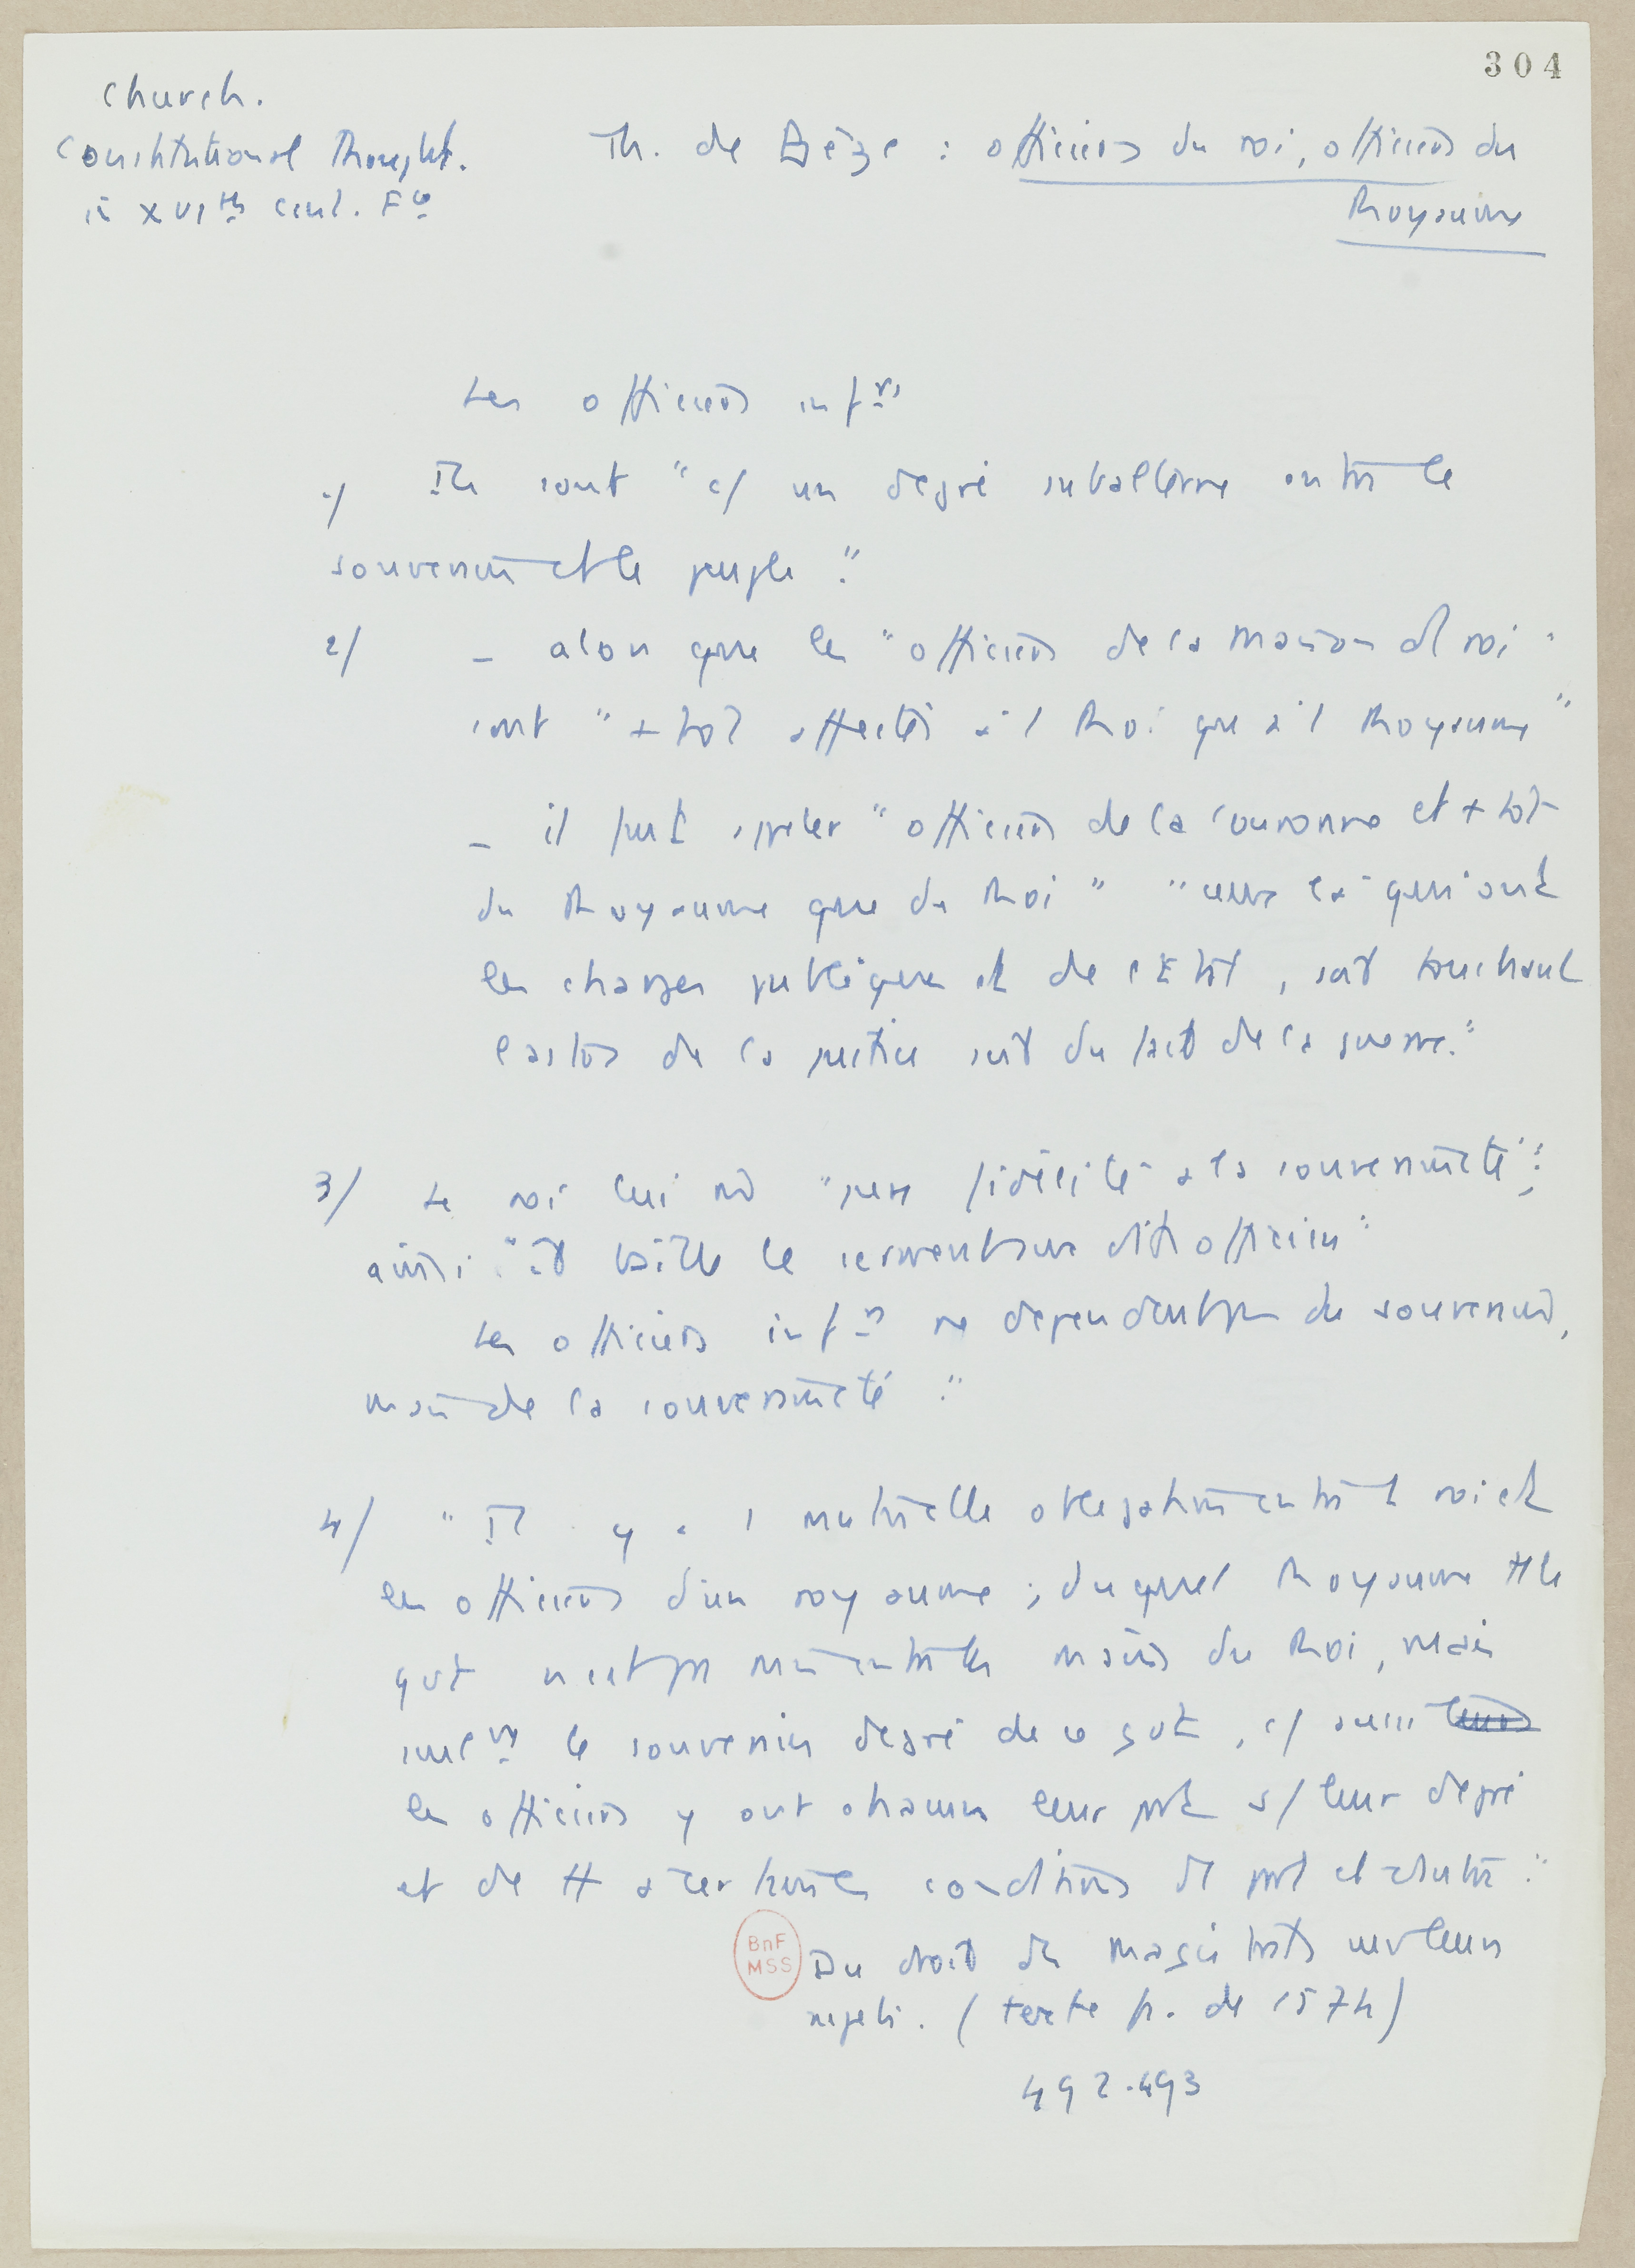 304
Church.
Constitutional Thought.
in XVIth cent. Fce
Th. de Bèze : officiers du roi, officiers du
Royaume
Les officiers infrs
1/ Ils sont "c/ un degré subalterne entre le
souverain et le peuple."
2/ – alors que les "officiers de la maison d roi"
sont "+ tot affectés à l Roi que à l Royaume"
– il faut appeler "officiers de la couronne et + tôt
du Royaume que du Roi" "ceux là qui ont
les charges publiques et de l'Etat, soit touchant
l'action de la justice soit du fait de la guerre."
3/ Le roi lui "jure fidélité à la souveraineté";
ainsi: le serment aux dits officiers"
Les officiers infrs ne dependent pas du souverain,
mais de la souveraineté."
4/ "Il y a 1 mutuelle obligation entre l roi et
les officiers d'un royaume ; duquel Royaume tt le
gvt n'est pas mis entre les mains du Roi, mais
sulvt le souverain degré de ce gvt, c/ aussi leurs
les officiers y ont chacun leur part s/ leur degré
et de tt à certaines conditions d part et d'autre."
BnF
MSS
Du droit des magistrats sur leurs
sujets. (texte fr. de 1574)
492-493